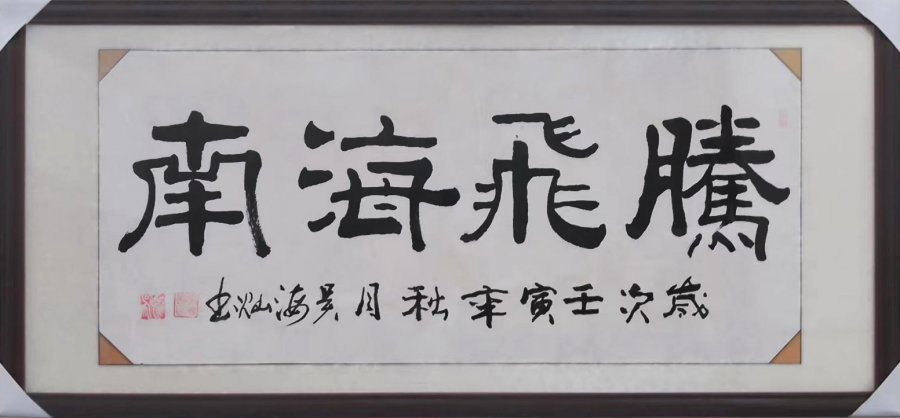 騰飛海南
歲次壬寅年秋月吴海灿书